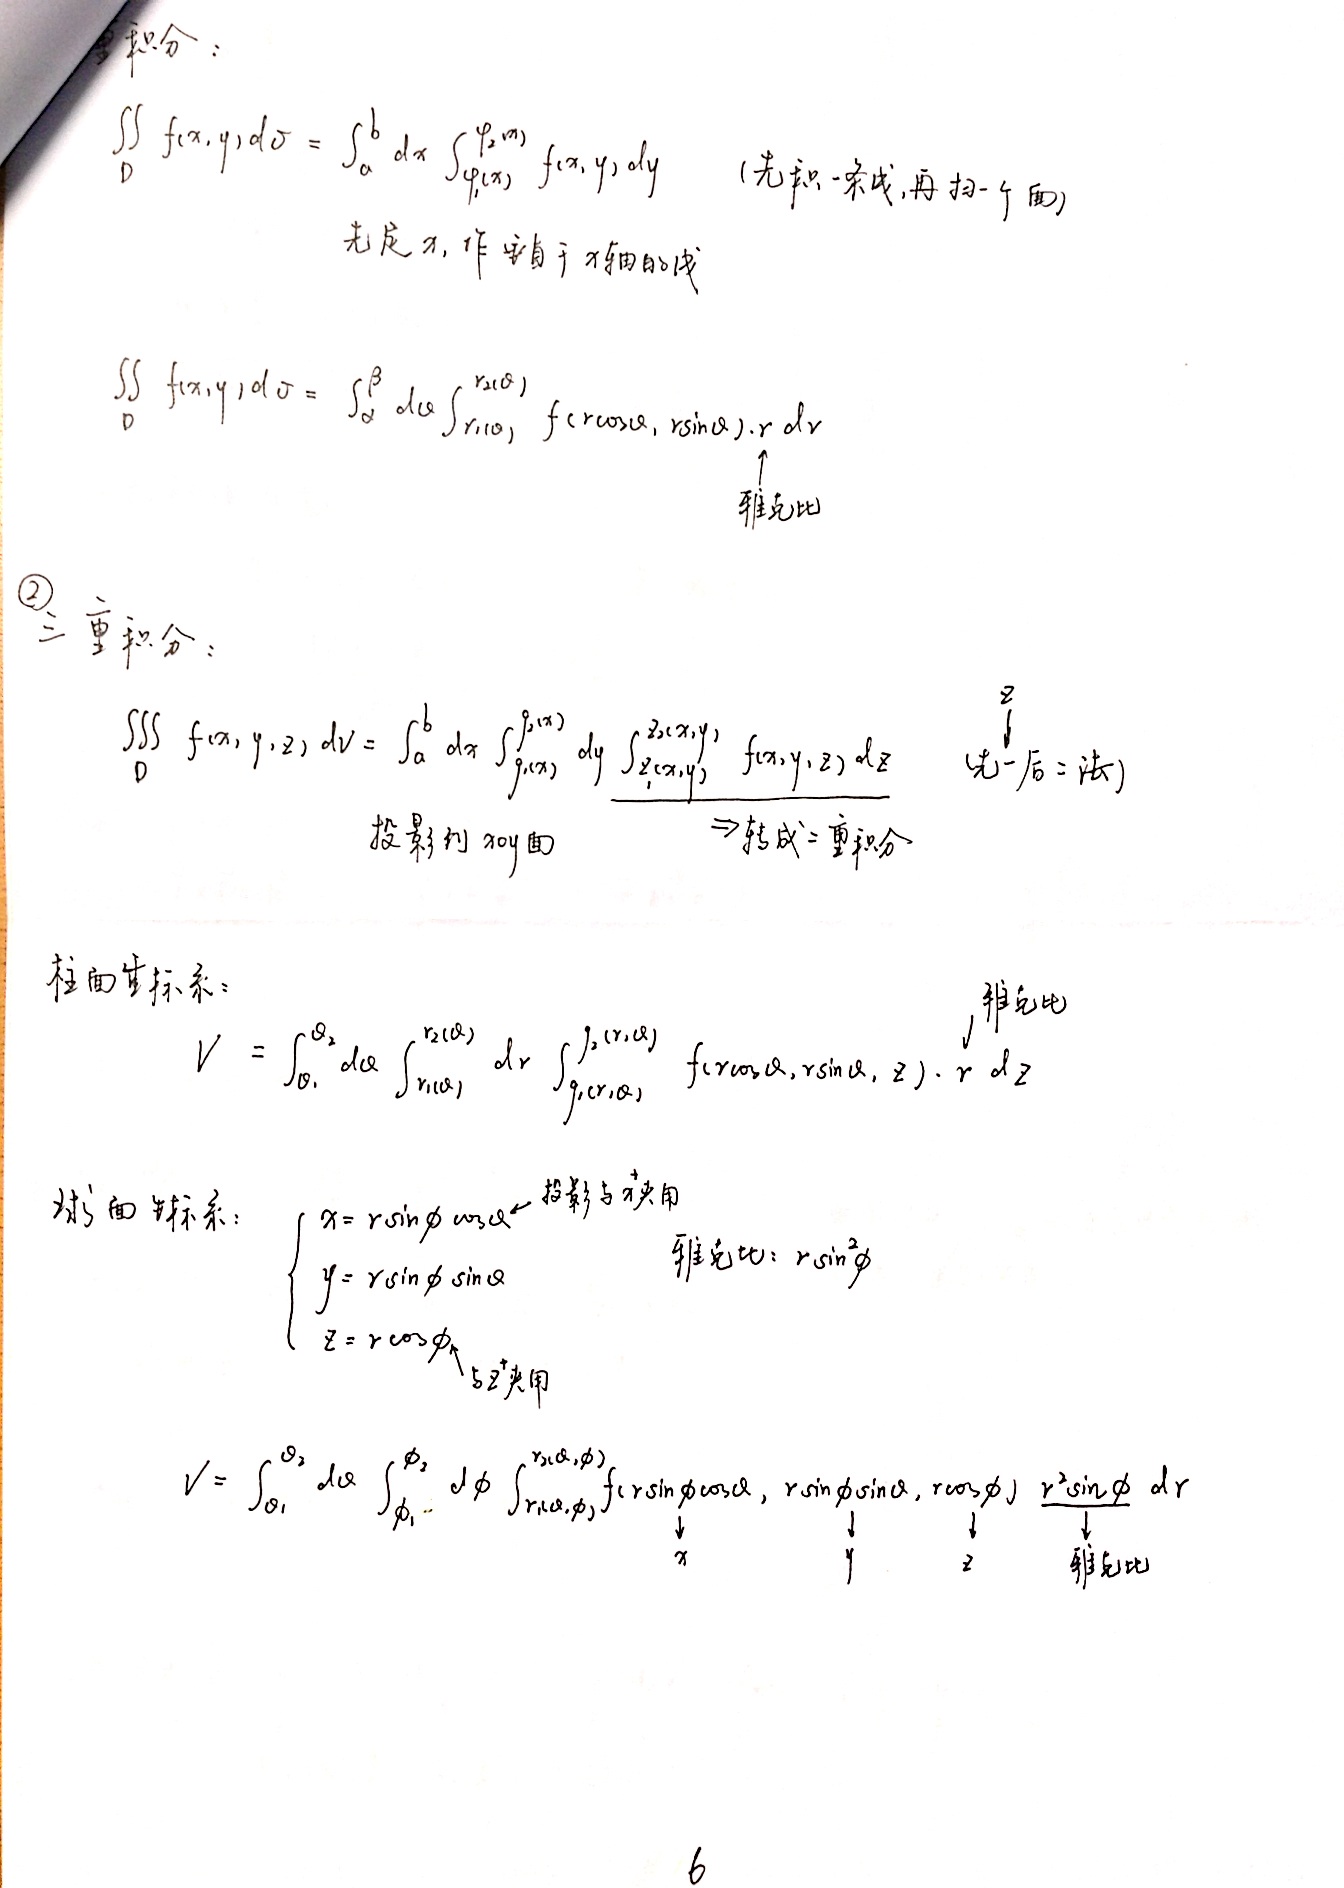 重积分：
∬_D f(x,y)dσ = ∫_a^b dx ∫_{φ₁(x)}^{φ₂(x)} f(x,y)dy （先积一条线,再扫一个面）
先定x, 作垂直于x轴的线
∬_D f(x,y)dσ = ∫_α^β dθ ∫_{r₁(θ)}^{r₂(θ)} f(rcosθ, rsinθ)·r dr
↑
雅克比
②
三重积分：
z
↓
∭_D f(x,y,z)dV = ∫_a^b dx ∫_{g₁(x)}^{g₂(x)} dy ∫_{z₁(x,y)}^{z₂(x,y)} f(x,y,z)dz （先一后二法）
投影到xoy面 ⇒转成二重积分
柱面坐标系：
雅克比
↓
V = ∫_{θ₁}^{θ₂} dθ ∫_{r₁(θ)}^{r₂(θ)} dr ∫_{g₁(r,θ)}^{g₂(r,θ)} f(rcosθ, rsinθ, z)·r dz
球面坐标系： x = rsinφcosθ ← 投影与x⁺夹角
y = rsinφsinθ 雅克比：rsin²φ
z = rcosφ
↖与z⁺夹角
V = ∫_{θ₁}^{θ₂} dθ ∫_{φ₁}^{φ₂} dφ ∫_{r₁(θ,φ)}^{r₂(θ,φ)} f(rsinφcosθ, rsinφsinθ, rcosφ) r²sinφ dr
↓ ↓ ↓ ↓
x y z 雅克比
6